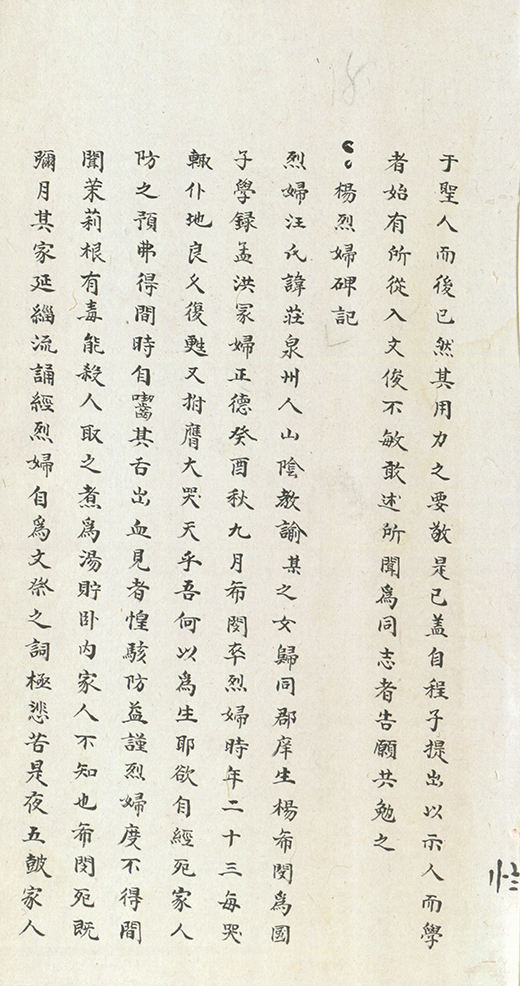 于聖人而後已然其用力之要敬是已盖自程子提出以示人而學
者始有所從入文俊不敏敢述所聞爲同志者告願共勉之
楊烈婦碑記
烈婦汪氏諱莊泉州人山陰教諭某之女歸同郡庠生楊希閔爲國
子學録孟洪冢婦正德癸酉秋九月希閔卒烈婦時年二十三每哭
輒仆地良久復甦又拊膺大哭天乎吾何以爲生耶欲自經死家人
防之預弗得間時自嚙其舌出血見者惶駭防益謹烈婦度不得間
聞茉莉根有毒能殺人取之煮爲湯貯卧内家人不知也希閔死既
彌月其家延緇流誦經烈婦自爲文祭之詞極悲苦是夜五皷家人